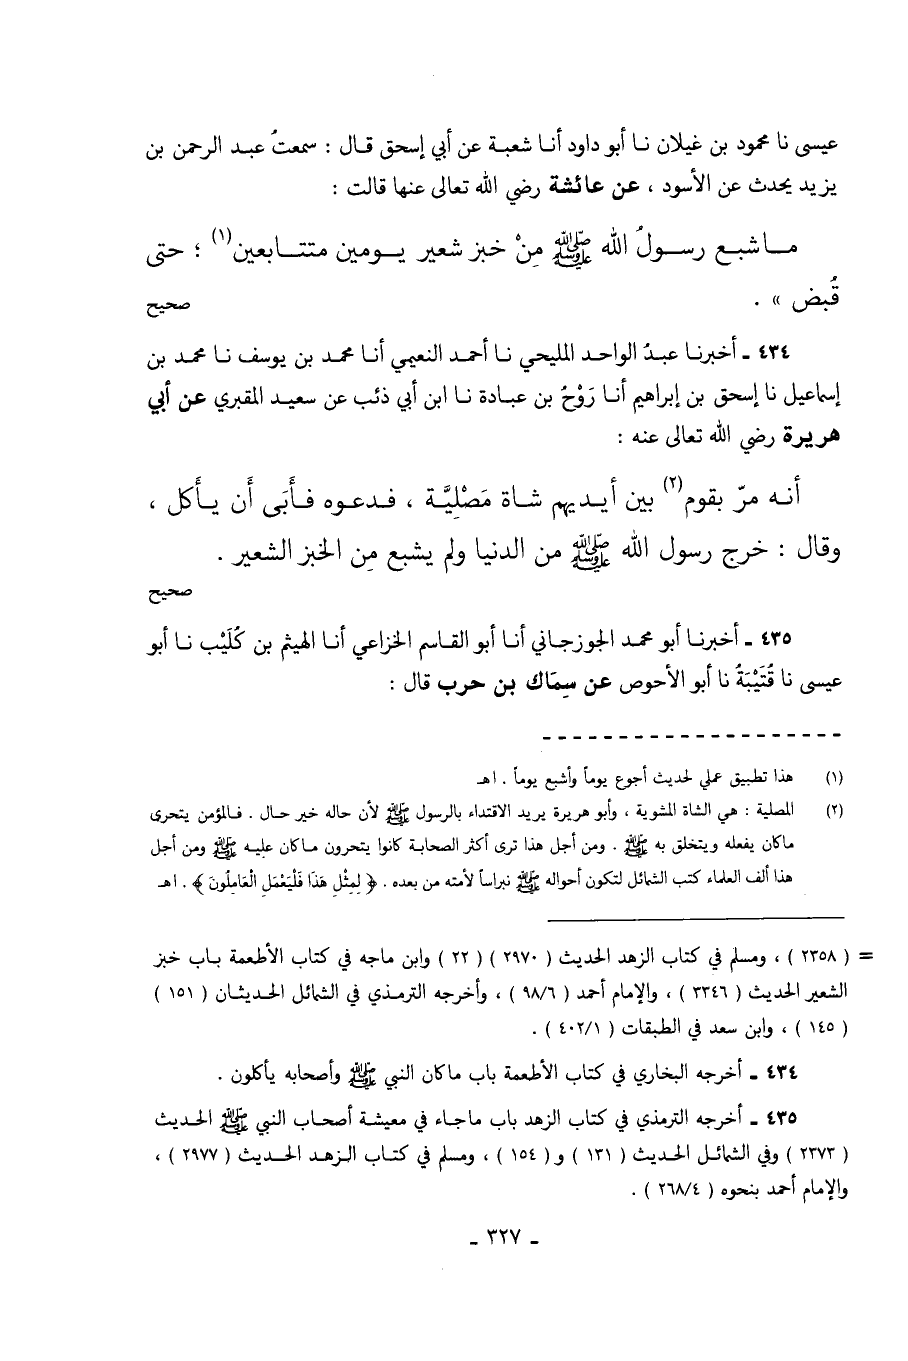 عيسى نا محمود بن غيلان نا أبو داود أنا شعبة عن أبي إسحق قال : سمعتُ عبد الرحمن بن
يزيد يحدث عن الأسود ، عن عائشة رضي الله تعالى عنها قالت :
ماشبع رسولُ الله ﷺ مِنْ خبز شعير يومين متتابعين(١) ؛ حتى
قُبض » .
صحيح
٤٣٤ ـ أخبرنا عبدُ الواحد المليحي نا أحمد النعيمي أنا محمد بن يوسف نا محمد بن
إسماعيل نا إسحق بن إبراهيم أنا رَوْحُ بن عبادة نا ابن أبي ذئب عن سعيد المقبري عن أبي
هريرة رضي الله تعالى عنه :
أنه مرّ بقوم(٢) بين أيديهم شاة مَصْلِيَّة ، فدعوه فأَبَى أَن يأكل ،
وقال : خرج رسول الله ﷺ من الدنيا ولم يشبع مِن الخبز الشعير .
صحيح
٤٣٥ ـ أخبرنا أبو محمد الجوزجاني أنا أبو القاسم الخزاعي أنا الهيثم بن كُلَيْب نا أبو
عيسى نا قُتَيْبَةُ نا أبو الأحوص عن سِمَاك بن حرب قال :
(١) هذا تطبيق عملي لحديث أجوع يوماً وأشبع يوماً . اهـ
(٢) المصلية : هي الشاة المشوية ، وأبو هريرة يريد الاقتداء بالرسول ﷺ لأن حاله خير حال . فالمؤمن يتحرى
ماكان يفعله ويتخلق به ﷺ . ومن أجل هذا ترى أكثر الصحابة كانوا يتحرون ماكان عليه ﷺ ومن أجل
هذا ألف العلماء كتب الشمائل لتكون أحواله ﷺ نبراساً لأمته من بعده . ﴿ لِمِثْلِ هَذَا فَلْيَعْمَلِ الْعَامِلُونَ ﴾ . اهـ
= ( ٢٣٥٨ ) ، ومسلم في كتاب الزهد الحديث ( ٢٩٧٠ ) ( ٢٢ ) وابن ماجه في كتاب الأطعمة باب خبز
الشعير الحديث ( ٣٣٤٦ ) ، والإمام أحمد ( ٩٨/٦ ) ، وأخرجه الترمذي في الشمائل الحديثان ( ١٥١ )
( ١٤٥ ) ، وابن سعد في الطبقات ( ٤٠٢/١ ) .
٤٣٤ ـ أخرجه البخاري في كتاب الأطعمة باب ماكان النبي ﷺ وأصحابه يأكلون .
٤٣٥ ـ أخرجه الترمذي في كتاب الزهد باب ماجاء في معيشة أصحاب النبي ﷺ الحديث
( ٢٣٧٣ ) وفي الشمائل الحديث ( ١٣١ ) و ( ١٥٤ ) ، ومسلم في كتاب الزهد الحديث ( ٢٩٧٧ ) ،
والإمام أحمد بنحوه ( ٢٦٨/٤ ) .
ـ ٣٢٧ ـ